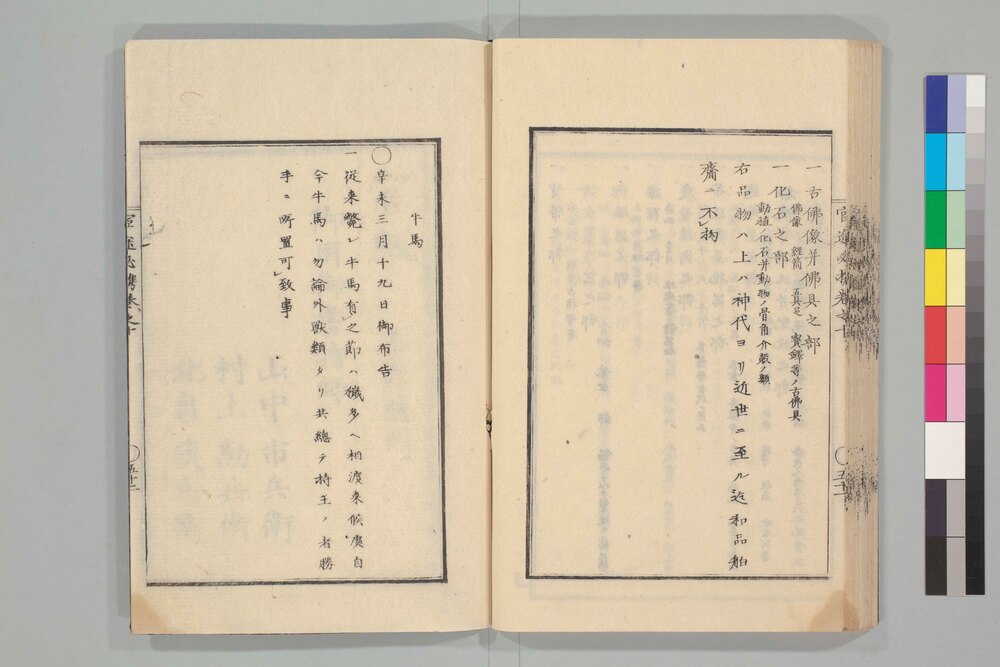 一古佛像并佛具之部
佛像 經筒 五具足 寳鐸等ノ古佛具
一化石之部
動植ノ化石并動物ノ骨角介殻ノ類
右品物ハ上ハ神代ヨリ近世ニ至ル迄和品舶
齎ニ不拘
牛馬
○辛未三月十九日御布告
一従来斃レ牛馬有之節ハ穢多ヘ相渡来候處自
今牛馬ハ勿論外獣類タリ共總テ持主ノ者勝
手ニ所置可致事